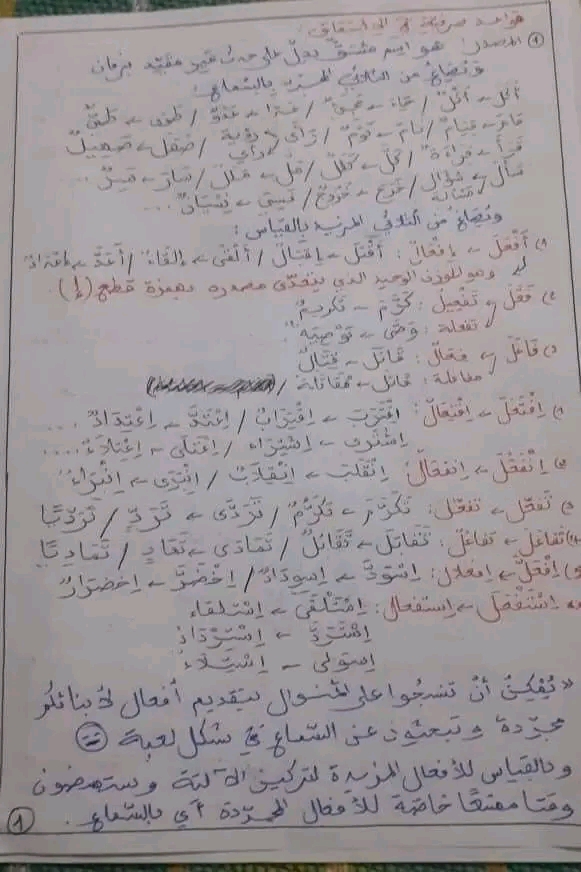 قواعد صرفية في الاشتقاق
① المصدر: هو اسم مشتق يدل على حدث غير مقيد بزمان
ونصاغ من الثلاثي المجرد بالسماع:
أكل ← أكلٌ / ← / عدا ← عدوٌ /
قام ← قيامٌ / نام ← نومٌ / رأى رؤية / رأي / صهل ← صهيلٌ
قرأ ← قراءة / / سار ← سيرٌ ...
سأل ← سؤال / مسألة / خرج ← خروجٌ / نسي ← نسيان ...
ونصاغ من الثلاثي المزيد بالقياس:
1) أفعل ← إفعال: / ألقى ← إلقاءٌ / أعدّ ← إعدادٌ
وهو الوزن الوحيد الذي مصدره بهمزة قطع (إ)
2) فعّل ← تفعيل: كرّم ← تكريمٌ
تفعلة: وصّى ← توصية
3) فاعل ← فعال: قاتل ← قتالٌ
مفاعلة: قاتل ← مقاتلة /
إفتعل ← إفتعال: اقترب ← اقترابٌ / اعتدّ ← اعتدادٌ ...
اشترى ← اشتراء / اعتلى ← اعتلاءٌ ...
إنفعل ← انفعال: انقلب ← انقلابٌ / انبرى ← انبراءٌ
تفعّل ← تفعّل: تكرّم ← تكرّمٌ / تردّى ← تردٍّ / تردّيًا
تفاعل ← تفاعل: تقاتل ← تقاتلٌ / تمادى ← تمادٍ / تماديًا
إفعلّ ← إفعلال: اسودّ ← اسودادٌ / اخضرّ ← اخضرارٌ
استفعل ← استفعال: استلقى ← استلقاء
استردّ ← استردادٌ
استولى ← استيلاءٌ
« يمكن أن تنسجوا على المنوال بتقديم أفعال لبنائكم
مجرّدة وتبحثون عن السماع في شكل لعبة
وبالقياس للأفعال المزيدة لتركيز الآلية وستمضون
وقتا ممتعًا خاصّة للأفعال المجرّدة أي بالسماع.
①